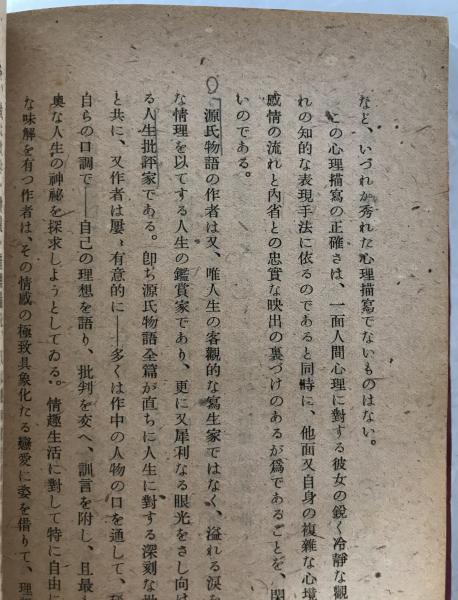 など、いづれか秀れた心理描寫でないものはない。
この心理描寫の正確さは、一面人間心理に對する彼女の鋭く冷靜な觀
れの知的な表現手法に依るのであると同時に、他面又自身の複雜な心境
感情の流れと內省との忠實な映出の裏づけのあるが爲であることを、閑
いのである。
源氏物語の作者は又、唯人生の客觀的な寫生家ではなく、溢れる淚を
な情理を以てする人生の鑑賞家であり、更に又犀利なる眼光をさし向け
る人生批評家である。卽ち源氏物語全篇が直ちに人生に對する深刻な批
と共に、又作者は屢〻有意的に――多くは作中の人物の口を通して、
自らの口調で――自己の理想を語り、批判を交へ、訓言を附し、且最も
奧な人生の神祕を探求しようとしてゐる。情趣生活に對して特に自由に
な味解を有つ作者は、その情感の極致具象化たる戀愛に姿を借りて、理